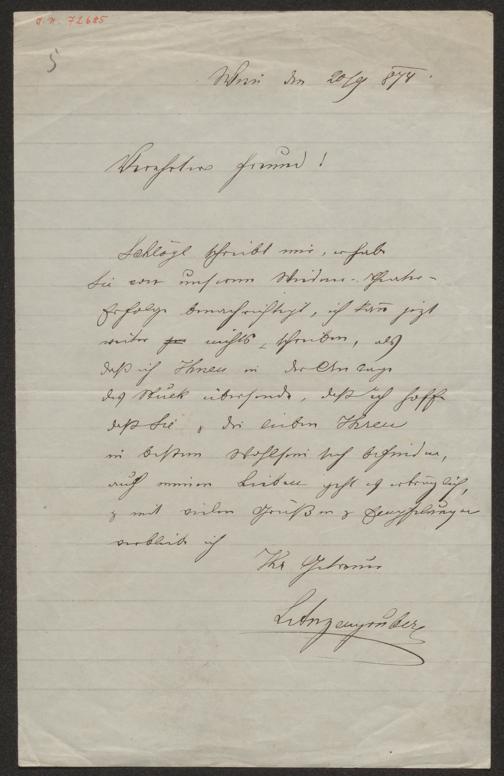 J. N. 72685
5
Wien den 20/9 874.
Verehrter Freund!
Schlögl schreibt mir, er habe
Sie von unserem Wiedner-Theater-
Erfolge benachrichtigt, ich kann jezt
weiter nichts schreiben, als
daß ich Ihnen in der Anlage
das Stück übersende, daß ich hoffe
daß Sie, die lieben Ihren
in bestem Wohlsein sich befinden,
auch meinen Lieben geht es erträglich,
& mit vielen Grüßen & Empfehlungen
verbleib ich
Ihr Getreuer
LAnzengruber